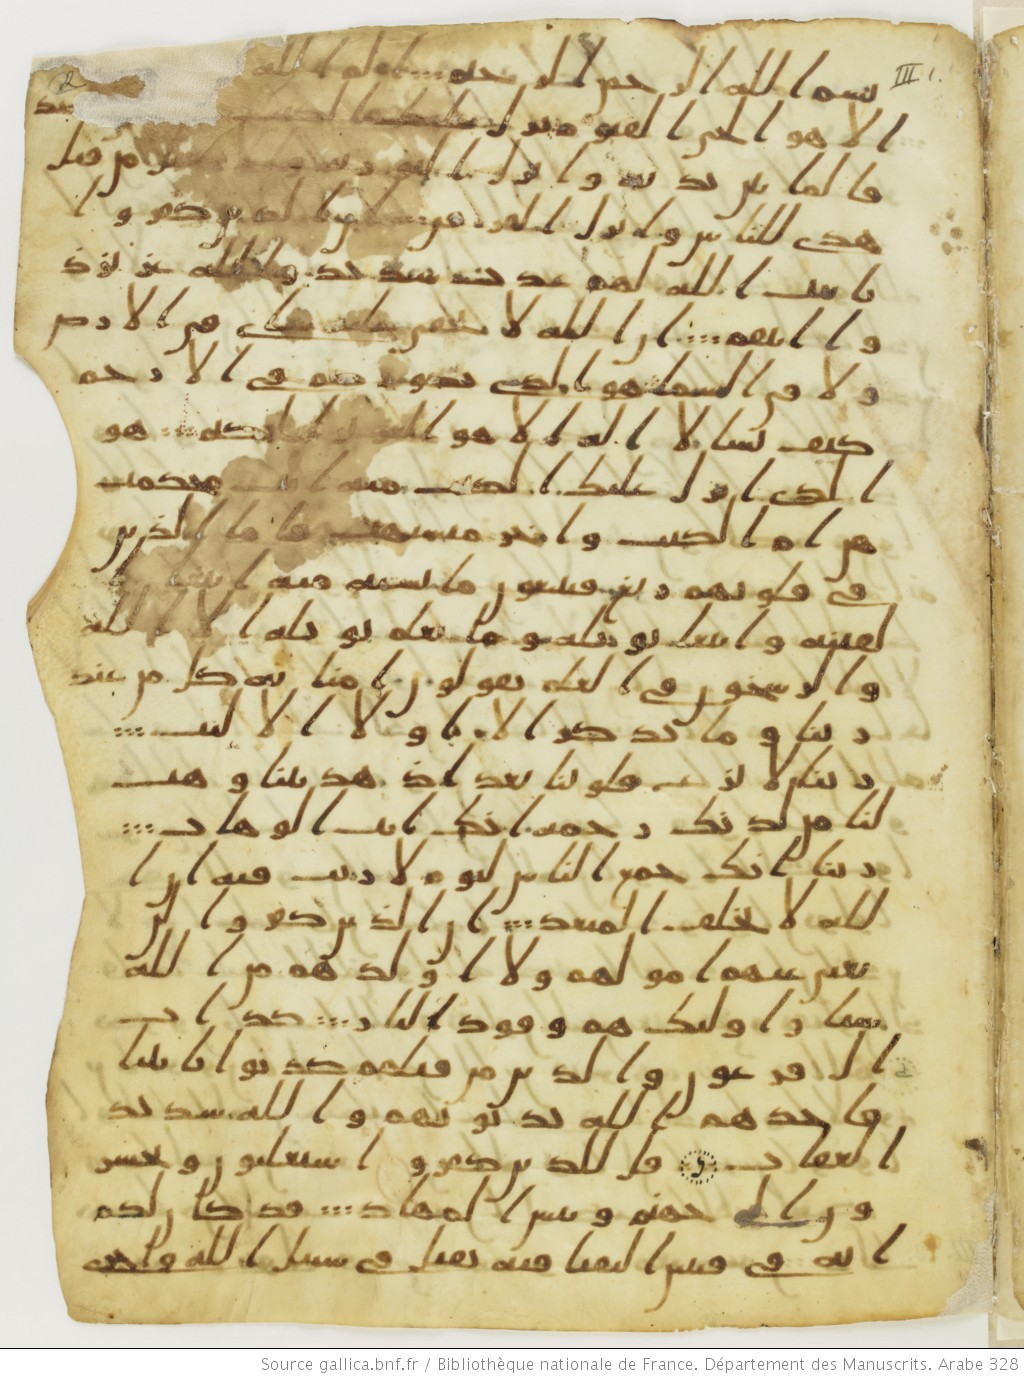 بسم الله الرحمن الرحيم الم الله
الا هو الحي القيوم نزل عليك الكتب
قا لما بين يديه وانزل التوريه من قبل
هدى للناس وانزل الفرقن ان الذين كفروا
بايت الله لهم عذب شديد والله عزيز ذ
وا انتقم ان الله لا يخفى عليه شي في الارض
ولا في السما هو الذي يصوركم في الارحم
كيف يشا لا اله الا هو العزيز الحكيم هو
الذي انزل عليك الكتب منه ايت محكمت
هن ام الكتب واخر متشبهت فاما الذين
في قلوبهم زيغ فيتبعون ما تشبه منه ابتغا ا
لفتنه وابتغا تويله وما يعلم تويله الا الله
والرسخون في العلم يقولون امنا به كل من عند
ربنا وما يذكر الا اولوا الالبب
ربنا لا تزغ قلوبنا بعد اذ هديتنا وهب
لنا من لدنك رحمه انك انت الوهاب
ربنا انك جمع الناس ليوم لا ريب فيه ان ا
لله لا يخلف الميعد ان الذين كفروا لن
تغني عنهم امولهم ولا اولدهم من الله
شيا واوليك هم وقود النار كداب
ال فرعون والذين من قبلهم كذبوا بايتنا
فاخذهم الله بذنوبهم والله شديد
العقاب قل للذين كفروا ستغلبون وتحشر
ون الى جهنم وبيس المهاد قد كان لكم
ايه في فيتين التقتا فيه تقتل في سبيل الله واخرى
III 1.
2
Source gallica.bnf.fr / Bibliothèque nationale de France. Département des Manuscrits. Arabe 328